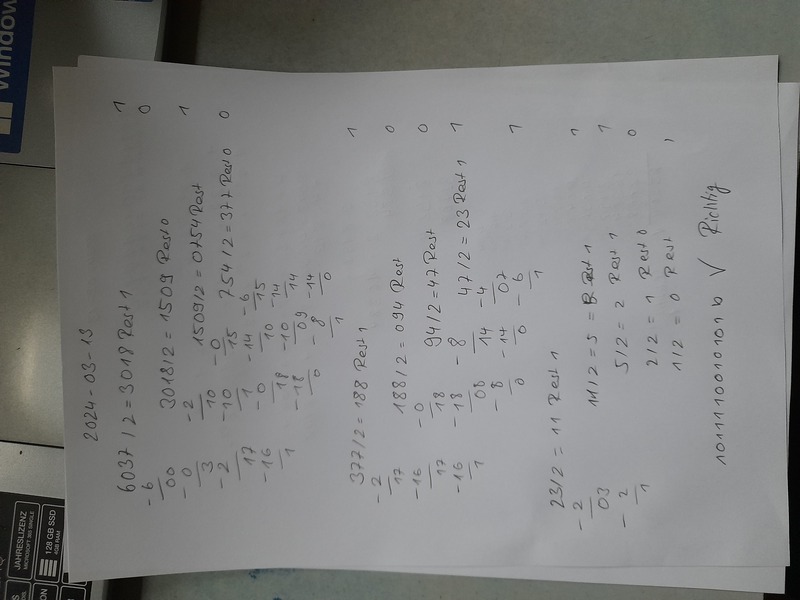 JAHRESLIZENZ
MICROSOFT 365 SINGLE
128 GB SSD
4GB RAM
Window
2024-03-13
6037/2 = 3018 Rest 1 1
- 6 0
00 3018/2 = 1509 Rest 0
- 0 - 2 1509/2 = 0754 Rest 1
3 10 - 0
- 2 - 10 15 754/2 = 377 Rest 0 0
17 1 - 14 - 6
- 16 - 0 10 15
1 18 - 10 - 14
- 18 09 14
0 - 8 - 14
1 0
377/2 = 188 Rest 1 1
- 2
17 188/2 = 094 Rest 0
- 16 - 0
17 18 94/2 = 47 Rest 0
- 16 - 18 - 8 47/2 = 23 Rest 1 1
1 08 14 - 4
- 8 - 14 07
0 0 - 6 1
1
23/2 = 11 Rest 1
- 2 1
03 11/2 = 5 = Rest 1
- 2 5/2 = 2 Rest 1 1
1 0
2/2 = 1 Rest 0
1/2 = 0 Rest
1011110010101 b √ Richtig